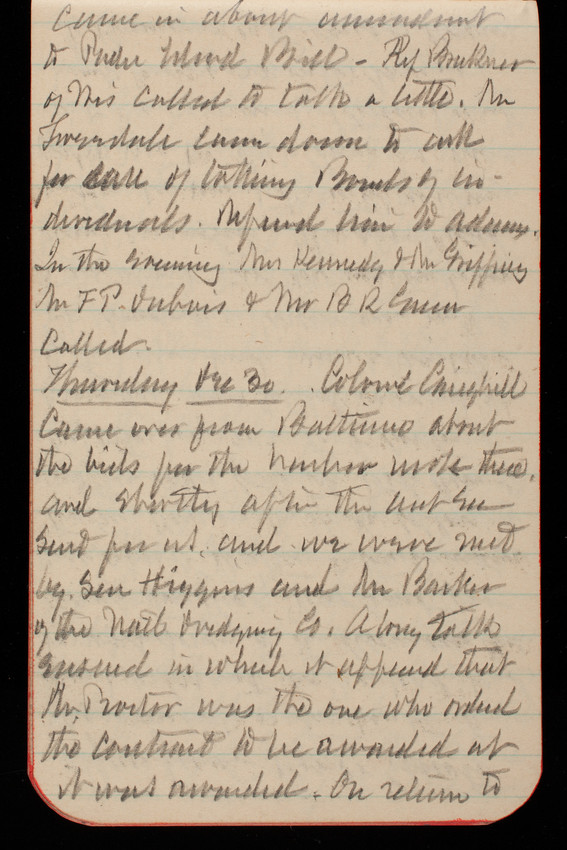 came in about amendment
to Padre Island Bill - Rep Bruckner
of Wis called to talk a little. Mr
came down to ask
for of Bonds of in-
dividuals. Refered him to Adams.
In the evening Mrs Kennedy & Mr Griffing
Mr F P. Dubois & Mr B R Green
called.
Thursday Dec 30. Colonel Craighill
came over from Baltimore about
the bids for the harbor work there,
and shortly after the act Sec
sent for us, and we were met
by Sen Higgins and Mr Barker
of the Natl Dredging Co. A long talk
ensued in which it appeared that
Mr. Proctor was the one who ordered
the contract to be awarded as
it was awarded. On return to